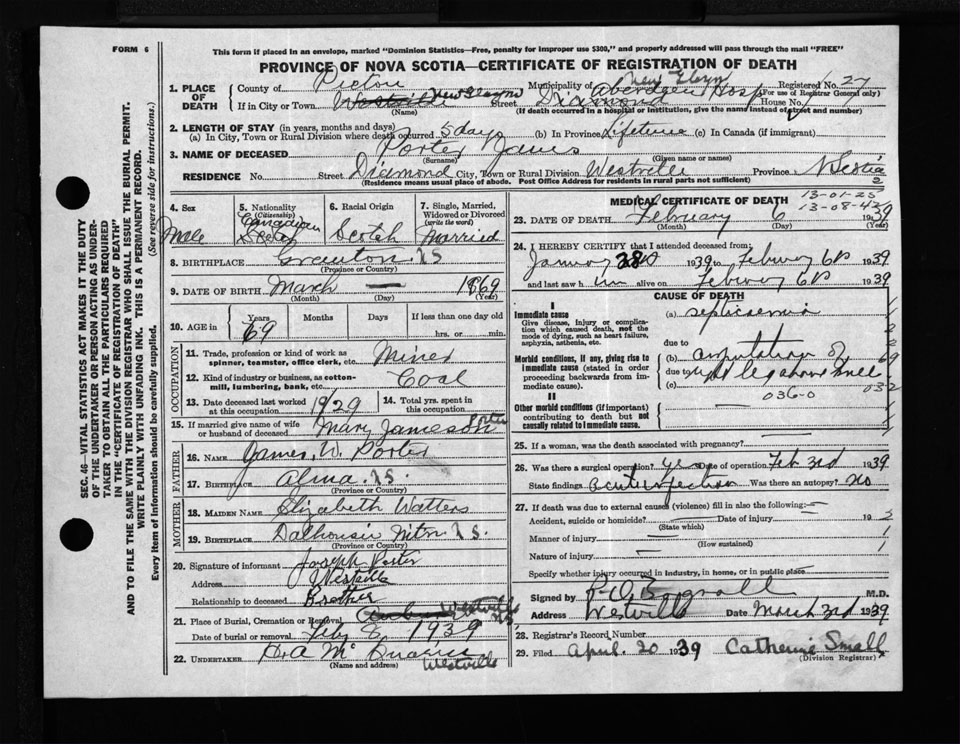 FORM 6
This form if placed in an envelope, marked "Dominion Statistics—Free, penalty for improper use $300," and properly addressed will pass through the mail "FREE"
PROVINCE OF NOVA SCOTIA—CERTIFICATE OF REGISTRATION OF DEATH
SEC. 46—VITAL STATISTICS ACT MAKES IT THE DUTY
OF THE UNDERTAKER OR PERSON ACTING AS UNDER-
TAKER TO OBTAIN ALL THE PARTICULARS REQUIRED
IN THE "CERTIFICATE OF REGISTRATION OF DEATH"
AND TO FILE THE SAME WITH THE DIVISION REGISTRAR WHO SHALL ISSUE THE BURIAL PERMIT.
WRITE PLAINLY WITH UNFADING INK. THIS IS A PERMANENT RECORD.
Every item of information should be carefully supplied. (See reverse side for instructions.)
1. PLACE OF DEATH
County of Pictou Municipality of New Glasgow Registered No. 27
(For use of Registrar General only)
If in City or Town Westville New Glasgow Street Diamond Aberdeen Hosp House No.
(Name) (If death occurred in a hospital or institution, give the name instead of street and number)
2. LENGTH OF STAY (in years, months and days)
(a) In City, Town or Rural Division where death occurred 5 days (b) In Province Lifetime (c) In Canada (if immigrant)
3. NAME OF DECEASED Porter James
(Surname) (Given name or names)
RESIDENCE No. Street Diamond City, Town or Rural Division Westville Province N Scotia
(Residence means usual place of abode. Post Office Address for residents in rural parts not sufficient)
2
4. Sex Male
5. Nationality (Citizenship) Canadian
6. Racial Origin Scotch
7. Single, Married, Widowed or Divorced (write the word) Married
8. BIRTHPLACE N S
(Province or Country)
9. DATE OF BIRTH March — 1869
(Month) (Day) (Year)
10. AGE in Years 69 Months Days If less than one day old hrs. or min.
OCCUPATION
11. Trade, profession or kind of work as spinner, teamster, office clerk, etc. Miner
12. Kind of industry or business, as cotton-mill, lumbering, bank, etc. Coal
13. Date deceased last worked at this occupation 1929
14. Total yrs. spent in this occupation
15. If married give name of wife or husband of deceased Mary Jameson Porter
FATHER
16. Name James W. Porter
17. Birthplace Alma N S.
(Province or Country)
MOTHER
18. MAIDEN NAME Elizabeth Watters
19. BIRTHPLACE Dalhousie Mtn N S.
(Province or Country)
20. Signature of informant Joseph Porter
Address Westville
Relationship to deceased Brother
21. Place of Burial, Cremation or Removal Westville NS
Date of burial or removal Feby 8 1939
22. UNDERTAKER Westville
(Name and address)
MEDICAL CERTIFICATE OF DEATH
13-01-23
13-08-43
23. DATE OF DEATH February 6 1939
(Month) (Day) (Year)
24. I HEREBY CERTIFY that I attended deceased from:
1939 to 1939
and last saw h im alive on 1939
CAUSE OF DEATH
I
Immediate cause
Give disease, injury or complication which caused death, not the mode of dying, such as heart failure, asphyxia, asthenia, etc.
(a) septicaemia
due to
Morbid conditions, if any, giving rise to immediate cause (stated in order proceeding backwards from immediate cause).
(b) amputation of
due to leg above knee
(c)
036-0 032
II
Other morbid conditions (if important) contributing to death but not causally related to immediate cause.
25. If a woman, was the death associated with pregnancy?
26. Was there a surgical operation? yes Date of operation Feb 3rd 1939
State findings acute infection Was there an autopsy? no
27. If death was due to external causes (violence) fill in also the following:—
Accident, suicide or homicide? Date of injury 19
(State which)
Manner of injury
(How sustained)
Nature of injury
Specify whether injury occurred in industry, in home, or in public place
Signed by M.D.
Address Westville Date March 3rd 1939
28. Registrar's Record Number
29. Filed April 20 1939 Catherine Small
(Division Registrar)